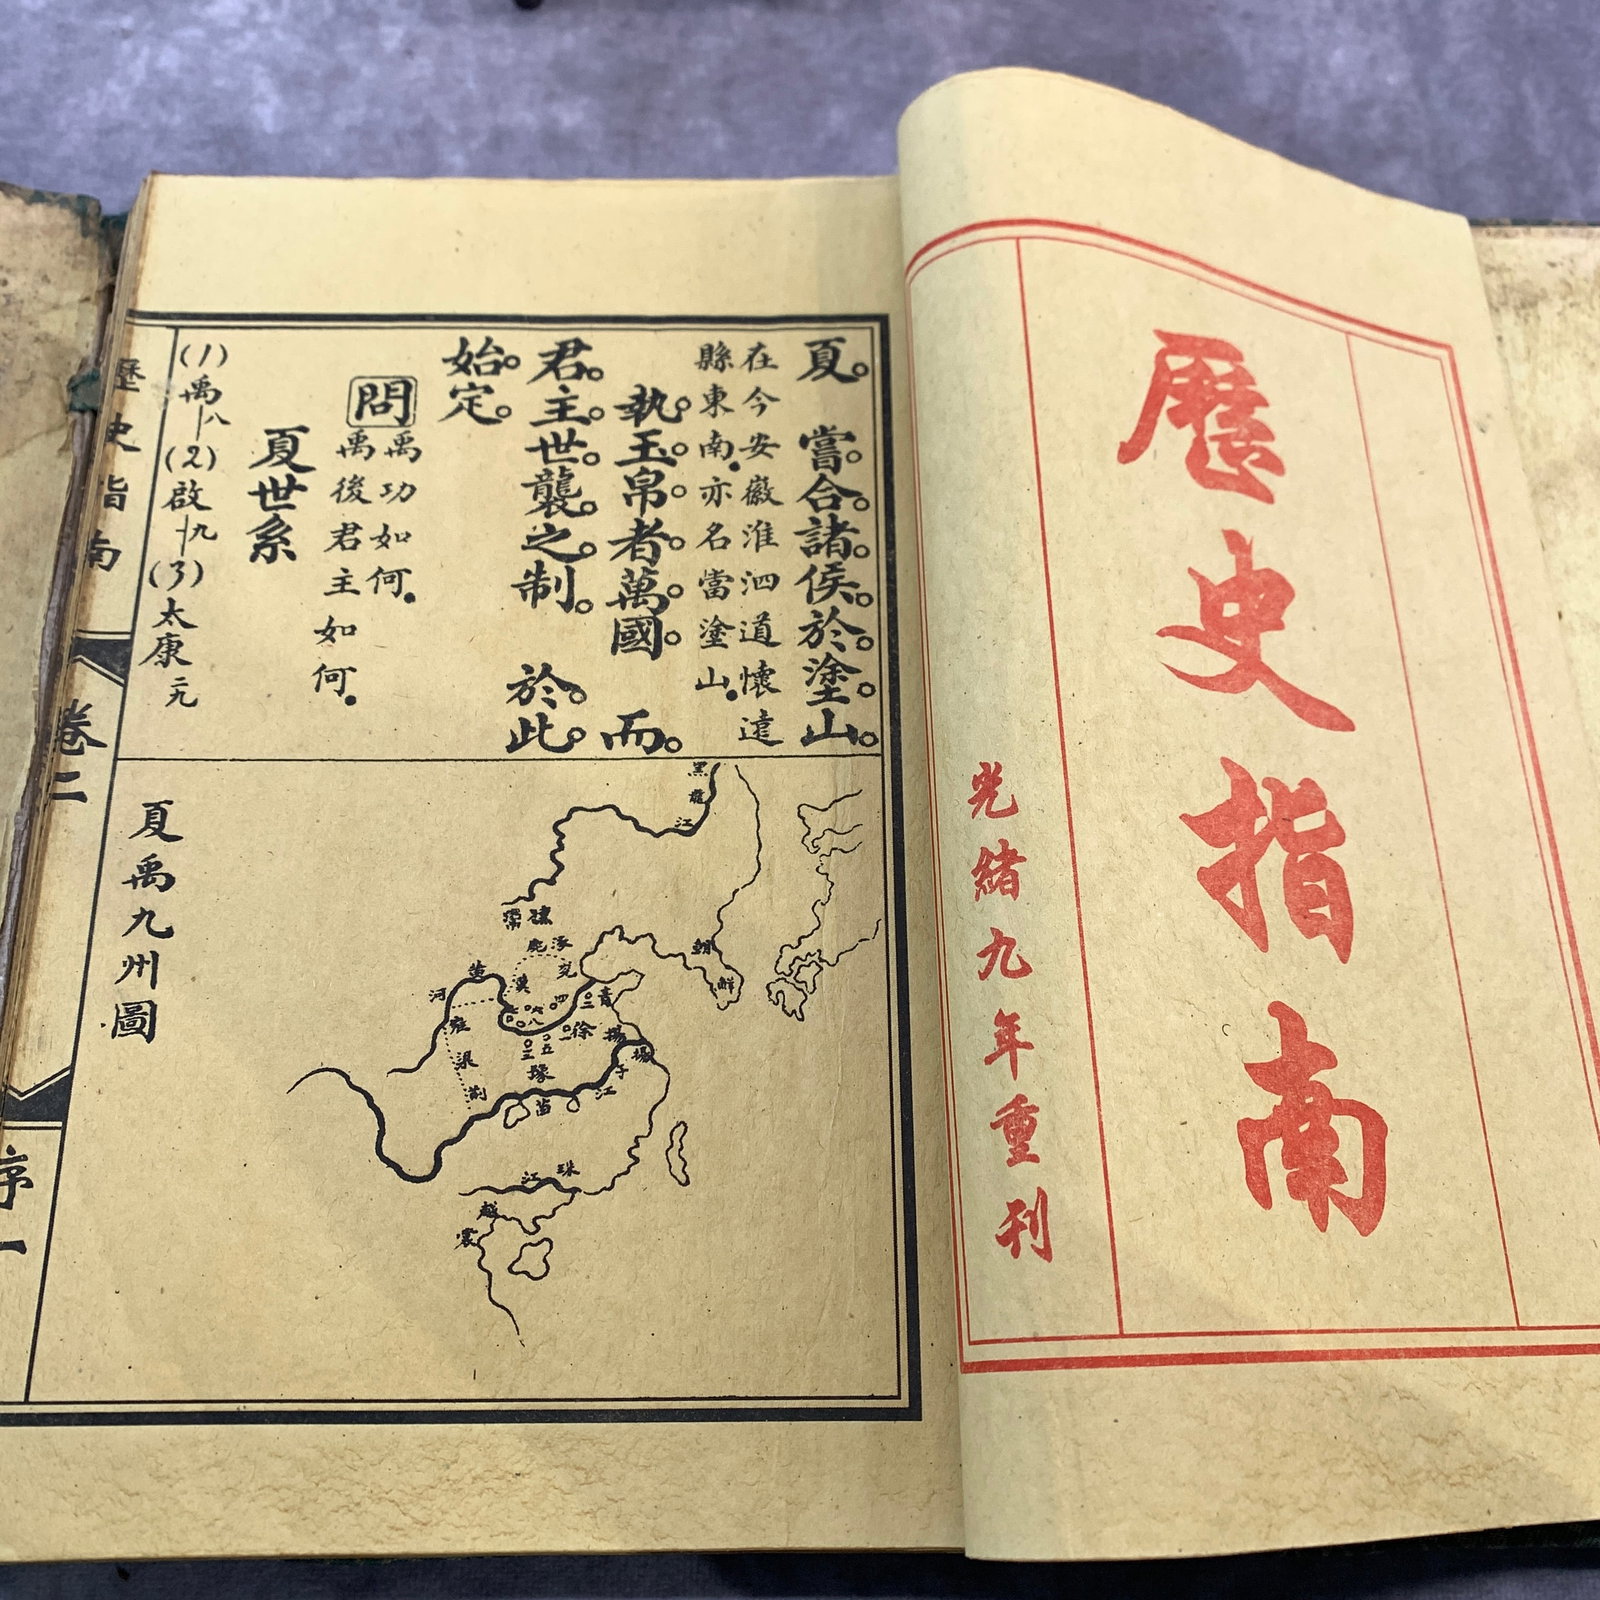 歷史指南
光緒九年重刊
夏。嘗。合。諸。侯。於。塗。山。
在今安徽淮泗道懷遠
縣東南.亦名當塗山.
執。玉。帛。者。萬。國。而。
君。主。世。襲。之。制。於。此。
始。定。
問
禹功如何.
禹後君主如何.
夏世系
(1)禹八(2)啟九(3)太康二九
夏禹九州圖
黑龍江
涿鹿
朝鮮
黃河
兗
青
徐
揚
揚子江
雍
梁
荊
豫
苗
珠江
越裳
歷史指南
卷二
序一